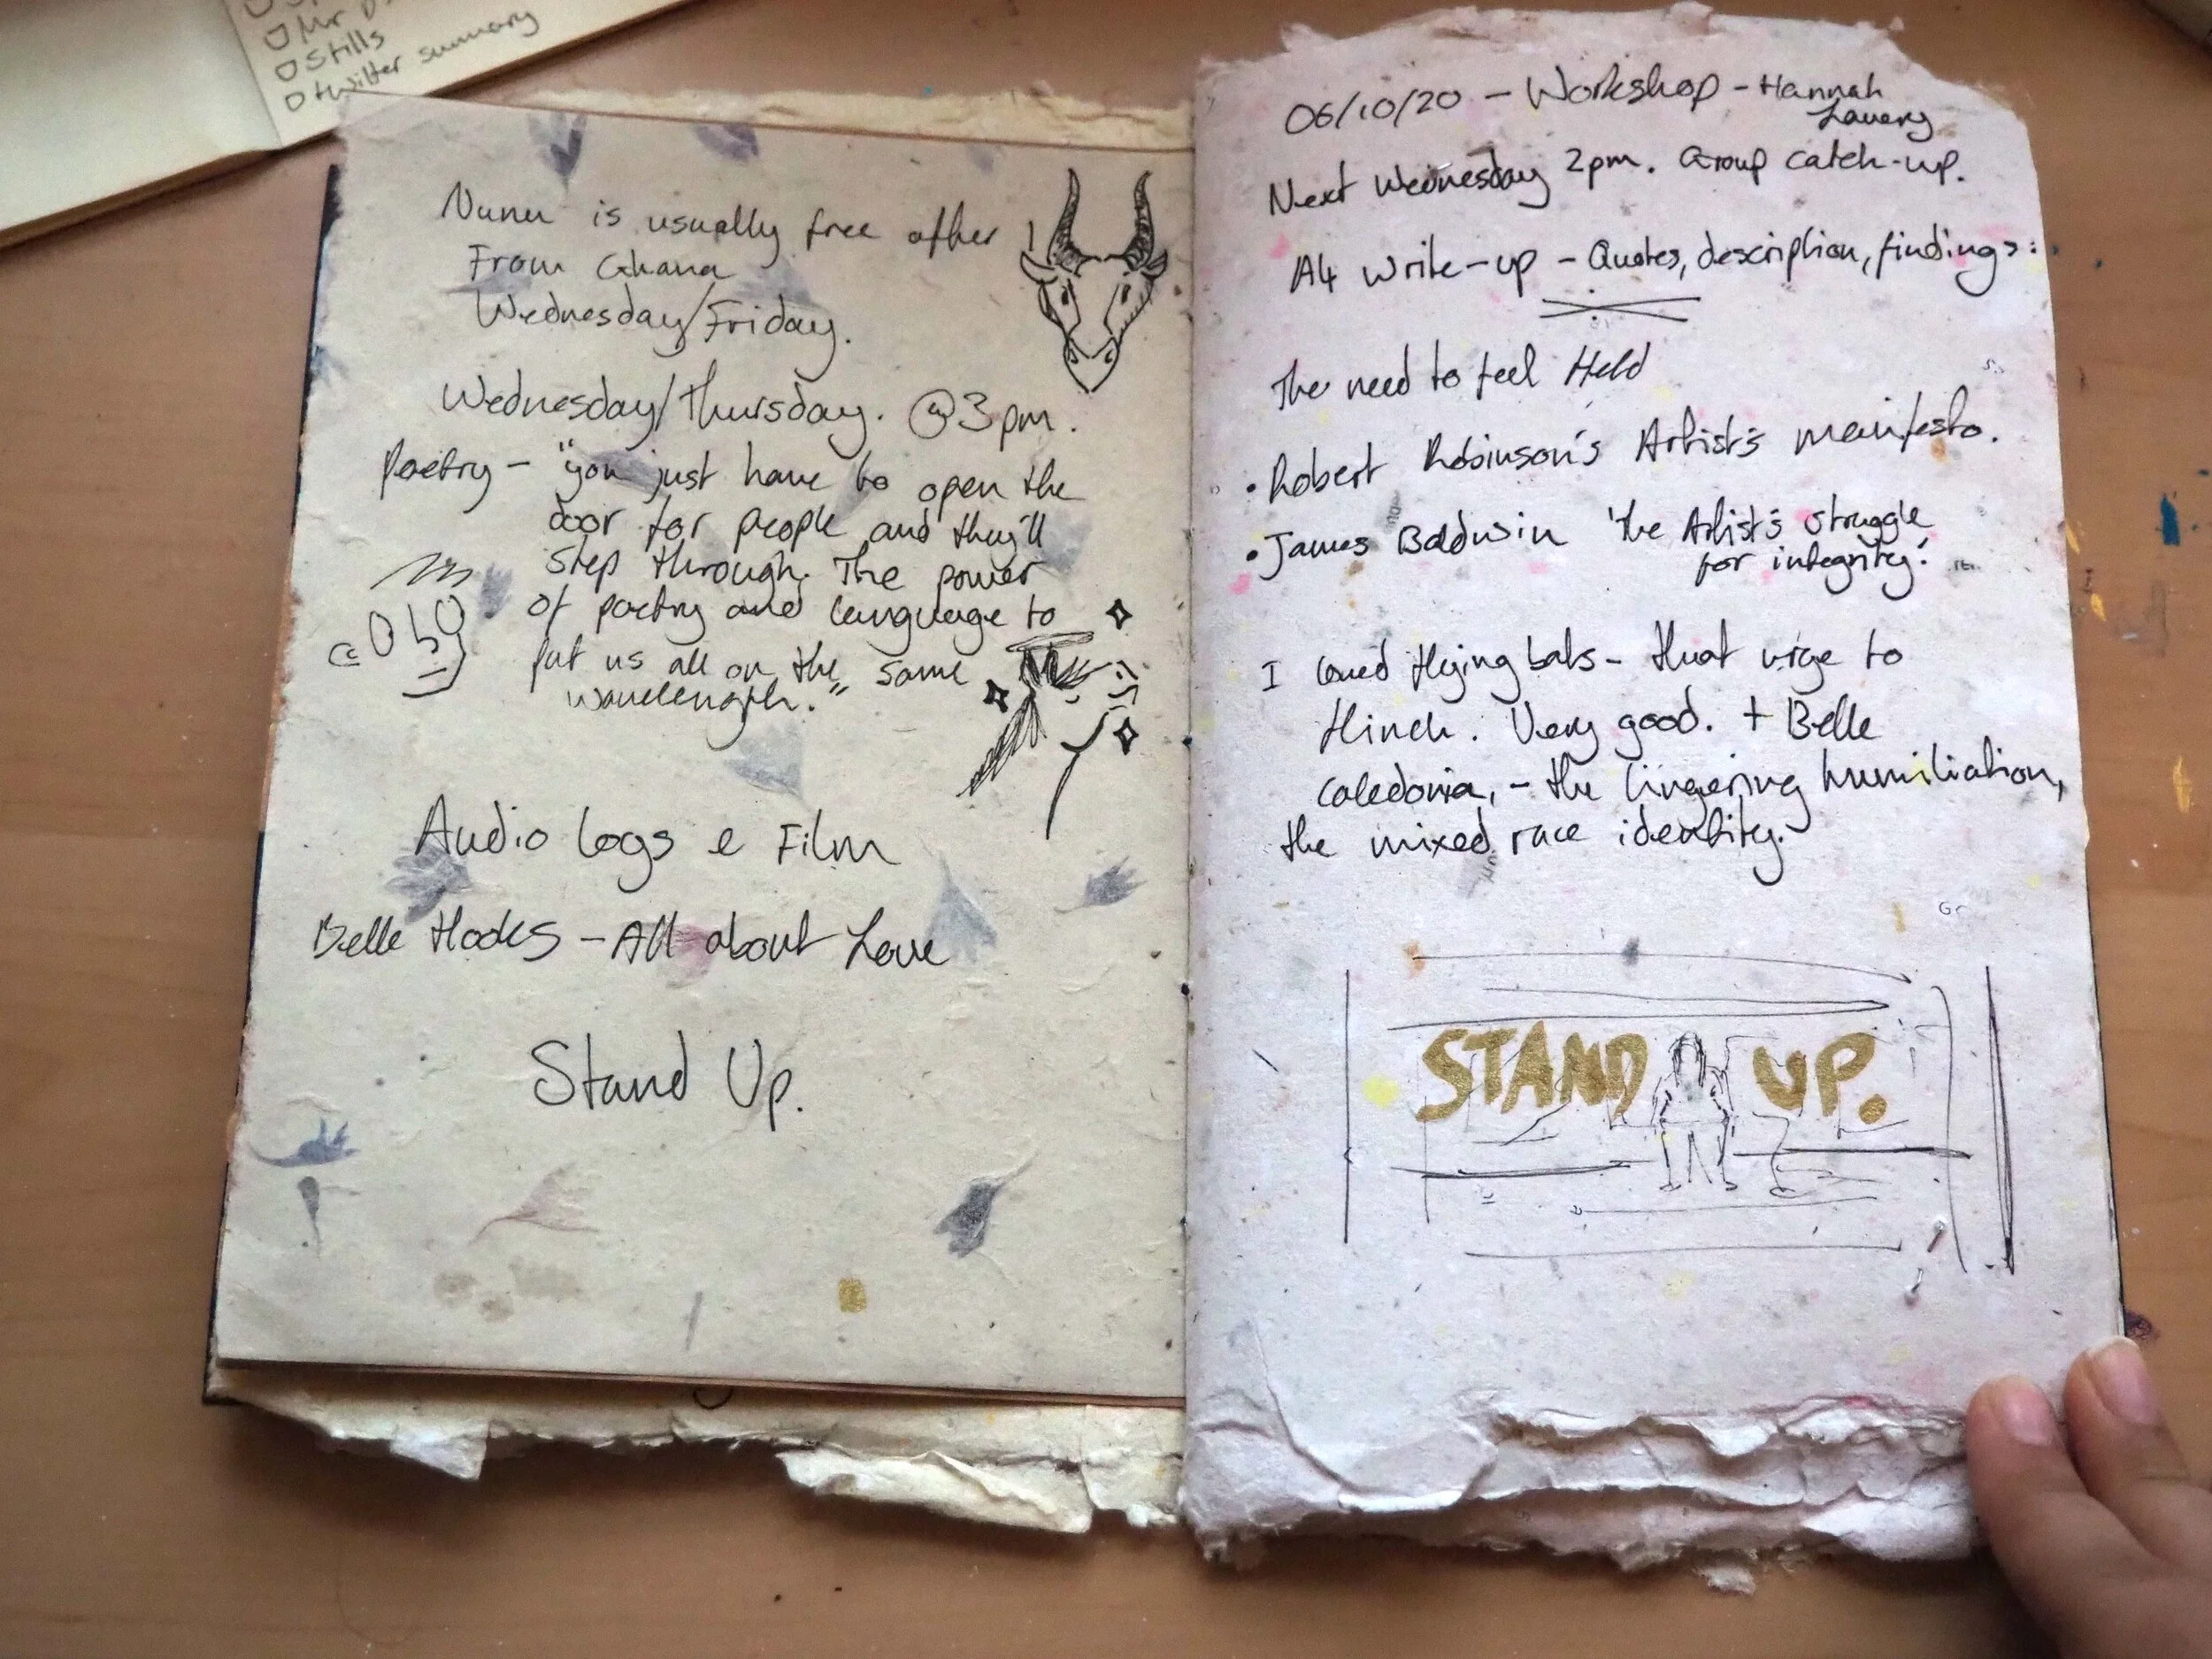 Mr
Stills
twitter summary
Nunu is usually free after 1
From Ghana
Wednesday/Friday.
Wednesday/Thursday. @3pm.
Poetry – "you just have to open the
door for people and they'll
step through. The power
of poetry and language to
put us all on the same
wavelength."
Audio logs e Film
Belle Hooks – All about Love
Stand Up.
06/10/20 – Workshop – Hannah
Lavery
Next Wednesday 2pm. Group catch-up.
A4 write-up – Quotes, description, findings:
The need to feel Held
• Robert Robinson's Artist's manifesto.
• James Baldwin 'the Artist's struggle
for integrity.'
I loved flying bats – that urge to
flinch. Very good. + Belle
Caledonia, – the lingering humiliation,
the mixed race identity.
STAND UP.